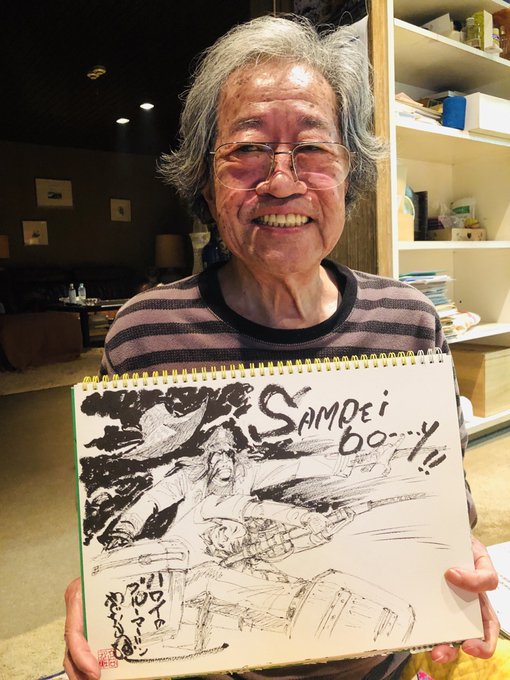 SAMPEi
bo---y!!
ハワイの
ブルーマーリン